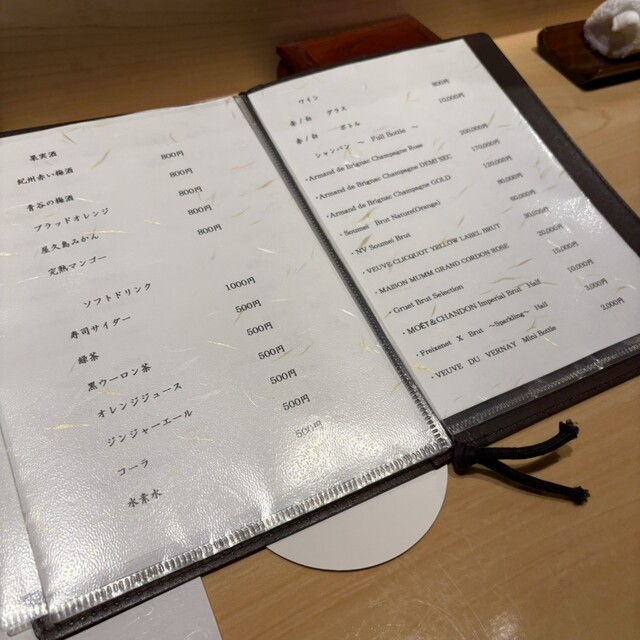 果実酒
紀州赤い梅酒 800円
青谷の梅酒 800円
ブラッドオレンジ 800円
屋久島みかん 800円
完熟マンゴー 800円
ソフトドリンク
寿司サイダー 1000円
緑茶 500円
黒ウーロン茶 500円
オレンジジュース 500円
ジンジャーエール 500円
コーラ 500円
水素水 500円
ワイン
赤/白 グラス
赤/白 ボトル 10,000円
シャンパン ～ Full Bottle ～
・Armand de Brignac Champagne Rose 200,000円
・Armand de Brignac Champagne DEMI SEC 170,000円
・Armand de Brignac Champagne GOLD 120,000円
・Soumei Brut Nature(Orange)
・NV Soumei Brut
・VEUVE CLICQUOT YELLOW LABEL BRUT 30,000円
・MAISON MUMM GRAND CORDON ROSE 20,000円
・Gruet Brut Selection 15,000円
・MOET&CHANDON Imperial Brut Half 10,000円
・Freixenet X Brut ～Sparkling～ Half 3,000円
・VEUVE DU VERNAY Mini bottle 2,000円